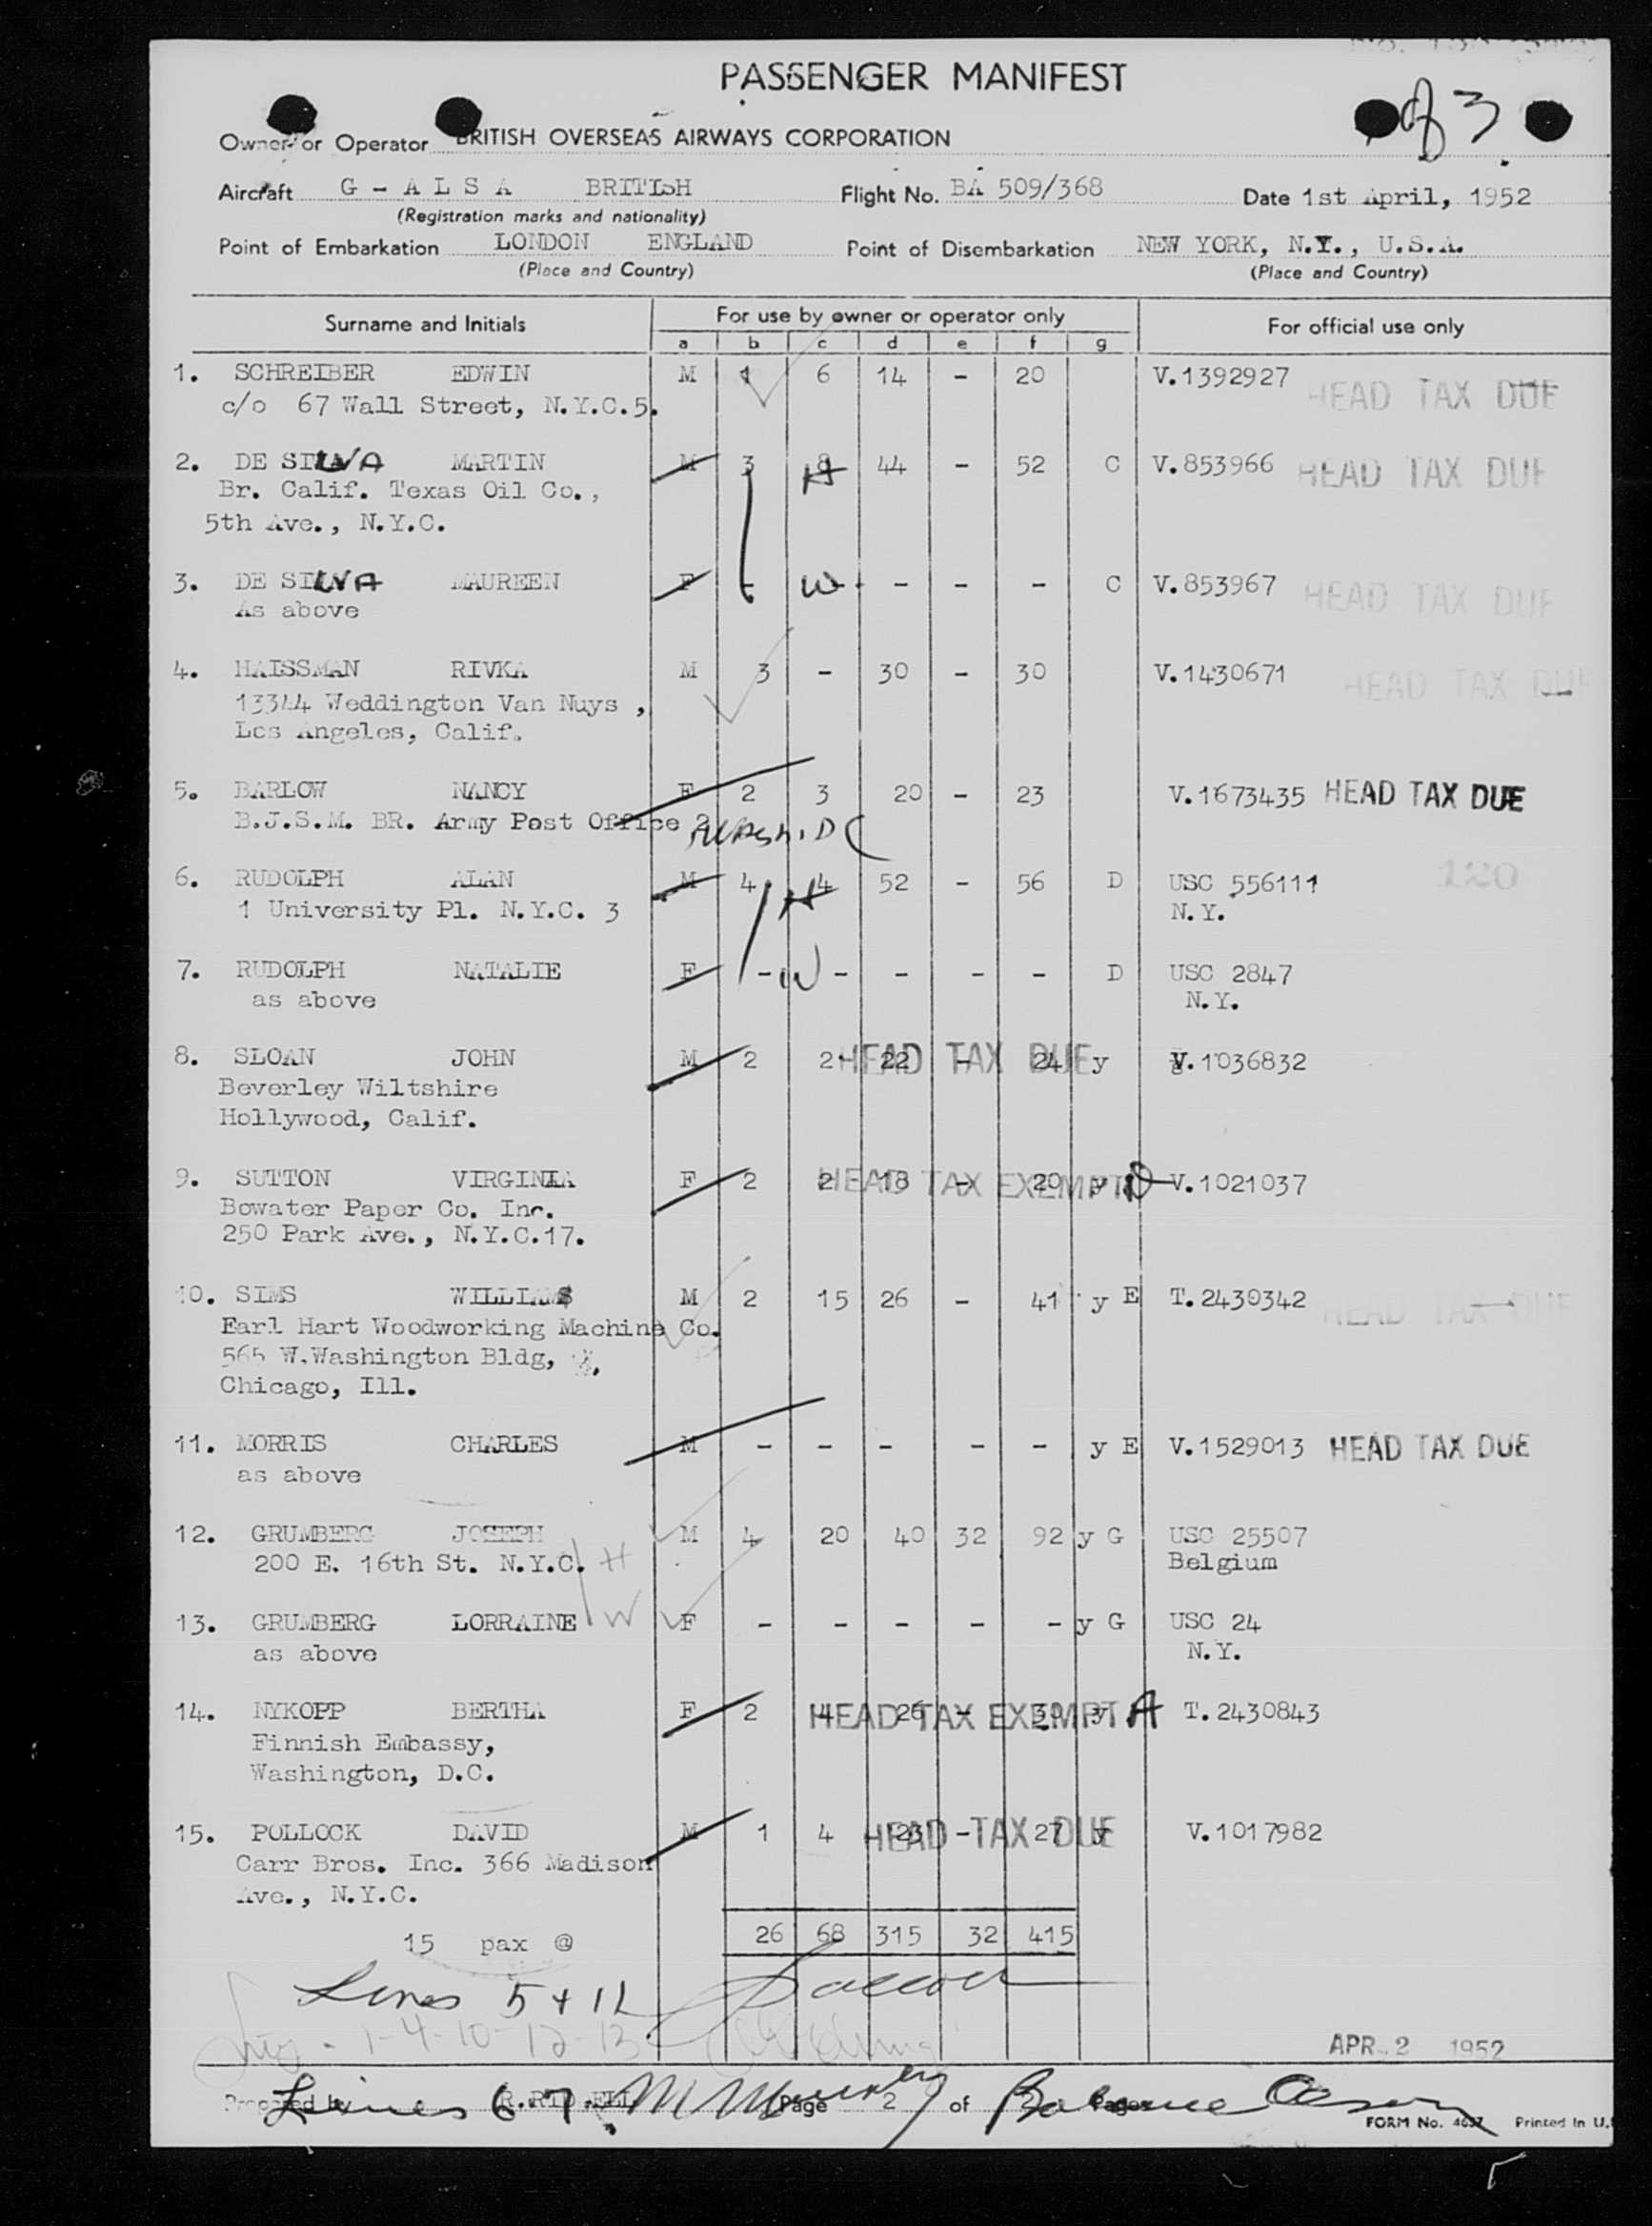 PASSENGER MANIFEST
of 3
Owner or Operator BRITISH OVERSEAS AIRWAYS CORPORATION
Aircraft G - A L S A BRITISH Flight No. BA 509/368 Date 1st April, 1952
(Registration marks and nationality)
Point of Embarkation LONDON ENGLAND Point of Disembarkation NEW YORK, N.Y., U.S.A.
(Place and Country) (Place and Country)
Surname and Initials For use by owner or operator only For official use only
a b c d e f g
1. SCHREIBER EDWIN M 1 6 14 - 20 V.1392927 HEAD TAX DUE
c/o 67 Wall Street, N.Y.C.5.
2. DE SILVA MARTIN M 3 8 44 - 52 C V.853966 HEAD TAX DUE
H
Br. Calif. Texas Oil Co.,
5th Ave., N.Y.C.
3. DE SILVA MAUREEN F - W - - - C V.853967 HEAD TAX DUE
As above
4. HAISSMAN RIVKA M 3 - 30 - 30 V.1430671 HEAD TAX DUE
13344 Weddington Van Nuys ,
Los Angeles, Calif.
5. BARLOW NANCY F 2 3 20 - 23 V.1673435 HEAD TAX DUE
B.J.S.M. BR. Army Post Office 2 Wash. DC
6. RUDOLPH ALAN M 4 4 52 - 56 D USC 556111 120
H
1 University Pl. N.Y.C. 3 N.Y.
7. RUDOLPH NATALIE F - W - - - - D USC 2847
as above N.Y.
8. SLOAN JOHN M 2 2 22 - 24 y V.1036832
HEAD TAX DUE
Beverley Wiltshire
Hollywood, Calif.
9. SUTTON VIRGINIA F 2 2 18 - 20 y V.1021037
HEAD TAX EXEMPT
Bowater Paper Co. Inc.
250 Park Ave., N.Y.C.17.
10. SIMS WILLIAMS M 2 15 26 - 41 y E T.2430342 HEAD TAX DUE
Earl Hart Woodworking Machine Co.
565 W.Washington Bldg,
Chicago, Ill.
11. MORRIS CHARLES M - - - - - y E V.1529013 HEAD TAX DUE
as above
12. GRUMBERG JOSEPH M 4 20 40 32 92 y G USC 25507
200 E. 16th St. N.Y.C. H Belgium
13. GRUMBERG LORRAINE W F - - - - - y G USC 24
as above N.Y.
14. NYKOPP BERTHA F 2 4 26 - 30 y A T.2430843
HEAD TAX EXEMPT
Finnish Embassy,
Washington, D.C.
15. POLLOCK DAVID M 1 4 23 - 27 y V.1017982
HEAD TAX DUE
Carr Bros. Inc. 366 Madison
Ave., N.Y.C.
15 pax @ 26 68 315 32 415
Lines 5 + 11
1-4-10-12-13
APR 2 1952
Prepared by Page 2 of Pages
Lines 6 7 Balance
FORM No. 4037 Printed in U.